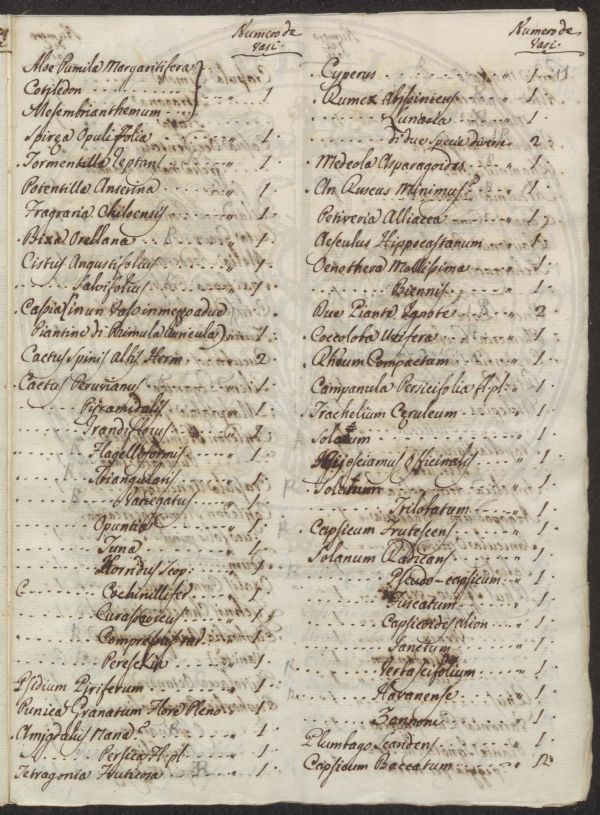 Numero de Vasi.
Aloe Pumila Margaritifera
Cotiledon . . . " 1
Mesembrianthemum
Spirea Opulifolia . . . " 1.
Tormentilla Reptans . . . " 1.
Potentilla Anserina . . . " 1.
Fragraria Chiloensis . . . " 1.
Bixa Orellana . . . R . . . " 1.
Cistus Angustifolius . . . " 1.
. . . Salvifolius . . . " 1.
Cassia (in un Vaso in mezzo a due
Piantine di Primula Auricula) . . . " 1.
Cactus Spinis Altis Herm . . . " 2.
Cactus Peruvianus . . . " 1.
. . . Piramidalis . . . " 1.
. . . Grandiflorus . . . " 1.
. . . Flagelliformis . . . " 1.
. . . Triangularis . . . " 1.
. . . Variegatus . . . " 1.
. . . Opuntia . . . " 1.
. . . Tuna . . . " 1.
. . . Horridus Scop: . . . " 1.
. . . Cochinillifer . . . " 1.
. . . Curassavicus . . . " 1.
. . . " 1.
. . . Pereskia . . . " 1.
Psidium Piriferum . . . " 1.
Punica Granatum Flore Pleno . 1.
Amigdalus Nana? . . . " 1.
. . . Persica fl. pl. . . . " 1.
Tetragonia fruticosa . . . R . . . " 1.
Numero de Vasi.
Cyperus . . . " 1 . 11
Rumex Abissinicus . . . " 1.
. . . Lunaria . . . " 1.
. . . di due specie diverse . 2.
Medeola Asparagoides . . . " 1.
An Ruscus Minimus? . . . " 1.
Petiveria Alliacea . . . " 1.
Aesculus Hippocastanum . . . " 1.
Oenothera Mollissima . . . " 1.
. . . Biennis . . . " 1.
Due Piante Ignote . . . " 2
Coccoloba Uvifera . . . " 1.
Rheum Compactum . . . " 1.
Campanula Persicifolia fl. pl. . " 1.
Trachelium Ceruleum . . . " 1.
Solanum . . . " 1.
Hijosciamus Officinalis . . . " 1.
. . . Trilobatum . . . " 1.
Capsicum Frutescens . . . " 1.
Solanum Radicans . . . " 1.
. . . Pseudo-capsicum . . " 1.
. . . Fuscatum . . . " 1.
. . . " 1.
. . . Sanctum . . . " 1.
. . . Verbascifolium . . . " 1.
. . . Havanense . . . " 1.
. . . Zannoni . . . " 1.
Plumbago Scandens . . . " 1.
Capsicum Baccatum . . . "